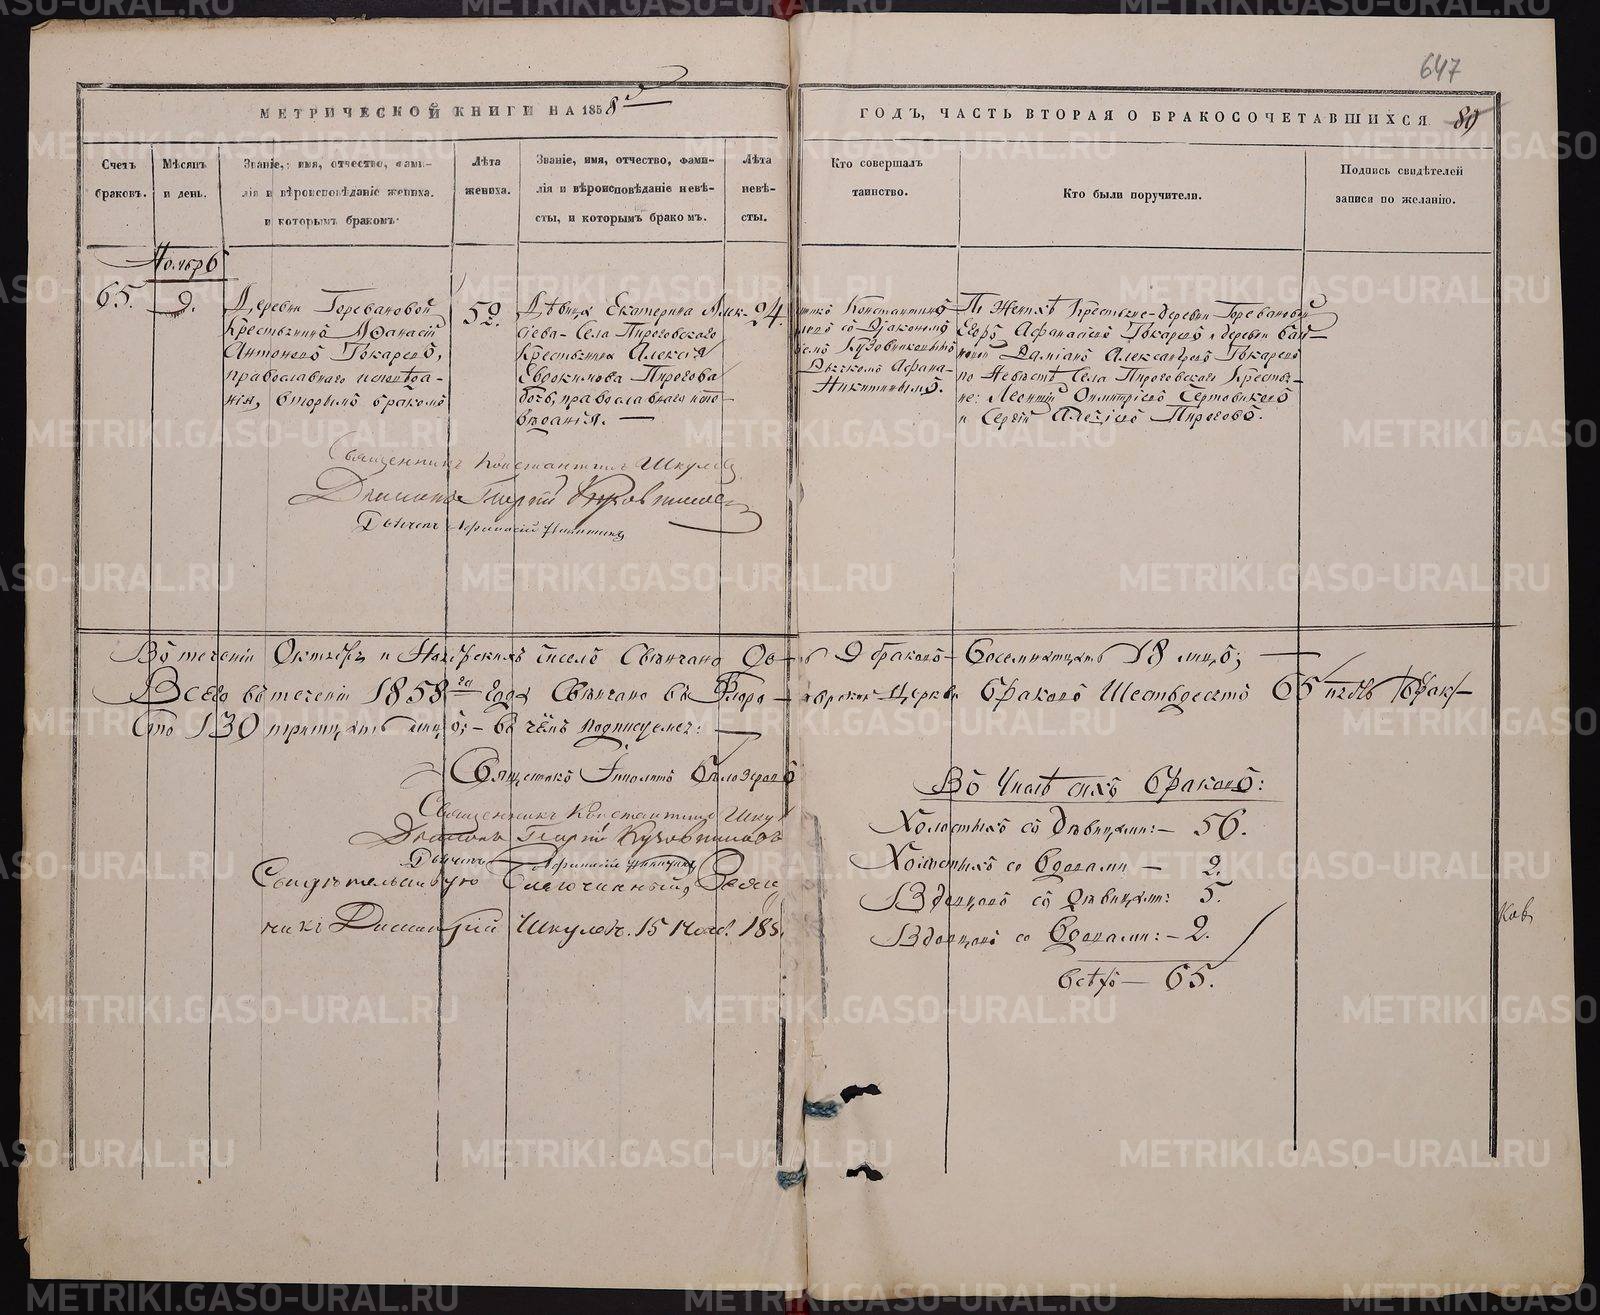 647
МЕТРИЧЕСКОЙ КНИГИ НА 1858
ГОДЪ, ЧАСТЬ ВТОРАЯ О БРАКОСОЧЕТАВШИХСЯ
89
Счетъ
браковъ.
Мѣсяцъ
и день.
Званіе, имя, отчество, фами-
лія и вѣроисповѣданіе жениха.
и которымъ бракомъ
Лѣта
жениха.
Званіе, имя, отчество, фами-
лія и вѣроисповѣданіе невѣ-
сты, и которымъ бракомъ.
Лѣта
невѣ-
сты.
Кто совершалъ
таинство.
Кто были поручители.
Подпись свидѣтелей
записи по желанію.
Ноябрь
65.
9.
Деревни Горевановой
Крестьянинъ Афанасій
Антоновъ Токаревъ,
православнаго исповѣда-
нія, вторымъ бракомъ
52.
Дѣвица Екатерина Алек-
сіева Села Пироговскаго
Крестьянина Алексія
Евдокимова Пирогова
дочь, православнаго испо-
вѣданія.
24.
Константинъ
со Діакономъ
Дьячкомъ Афана-
Никитинымъ.
По Женихѣ Крестьяне деревни Горевановой
Егоръ Афанасіевъ Токаревъ и деревни
Даміанъ Александровъ Токаревъ
по Невѣстѣ Села Пироговскаго Крестья-
не: Леонтій Димитріевъ
и Сергій Алексіевъ Пироговъ.
Священникъ Константинъ Шкулевъ
Діаконъ Георгій Кузовниковъ
Дьячекъ Афанасій Никитинъ
Въ теченіи Октября и Ноября мѣсяцевъ Свѣнчано 9 браковъ Восемнадцать 18 лицъ;
Всего въ теченіи 1858 го Года Свѣнчано въ Флоро-Лаврской Церкви браковъ Шестьдесятъ 65 пять брак-
Сто 130 тритцать лицъ; въ чемъ подписуемся:
Священникъ Ипполитъ
Священникъ Константинъ Шкулевъ
Діаконъ Георгій Кузовниковъ
Дьячекъ Афанасій Никитинъ
Свидѣтельствую Благочинный,
Димитрій Шкулевъ. 15 185
Въ Числѣ сихъ браковъ:
Холостыхъ съ дѣвицами: 56.
Холостыхъ со Вдовами 2.
Вдовцовъ съ Дѣвицами: 5.
Вдовцовъ со Вдовами: 2.
всего 65.
ков
METRIKI.GASO-URAL.RU